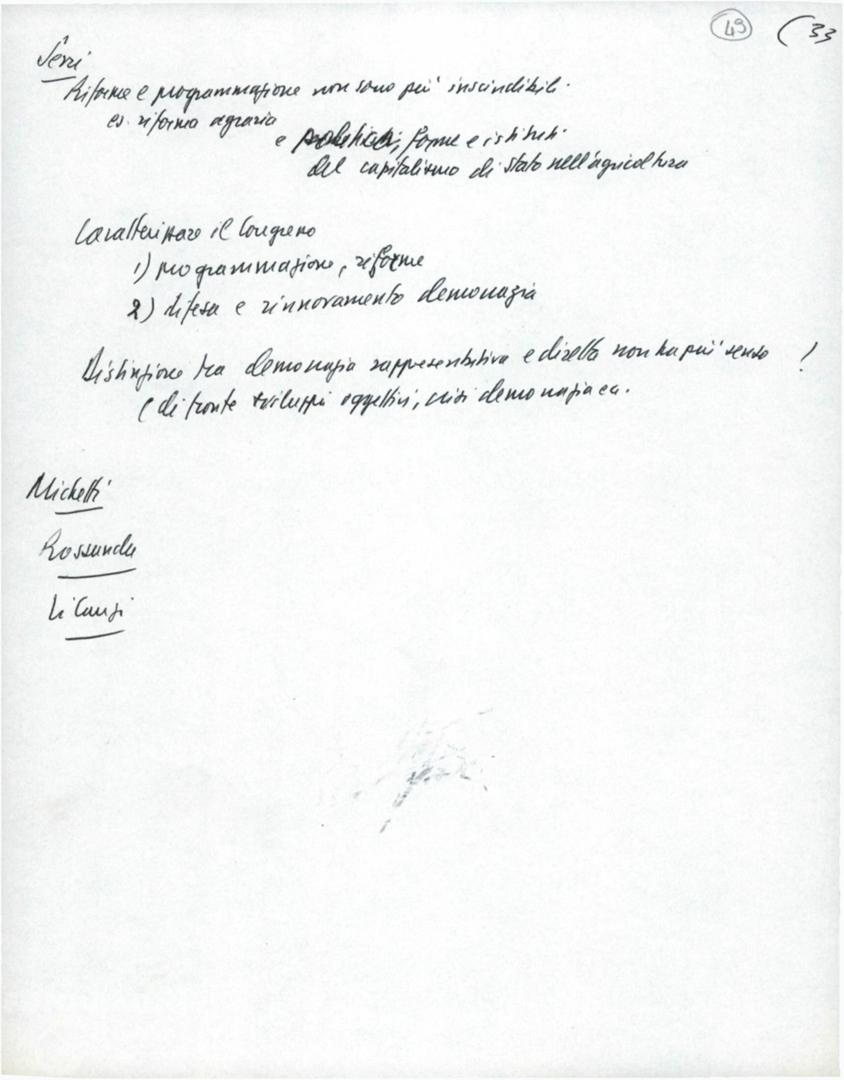 49 (33
Sereni
Riforme e programmazione non sono più inscindibili.
es. riforma agraria
e , forme e istituti
del capitalismo di stato nell'agricoltura
Caratterizzare il Congresso
1) programmazione, riforme
2) difesa e rinnovamento democrazia
Distinzione tra democrazia rappresentativa e diretta non ha più senso !
( di fronte sviluppi oggettivi, crisi democrazia ecc.
Michetti
Rossanda
Li Causi